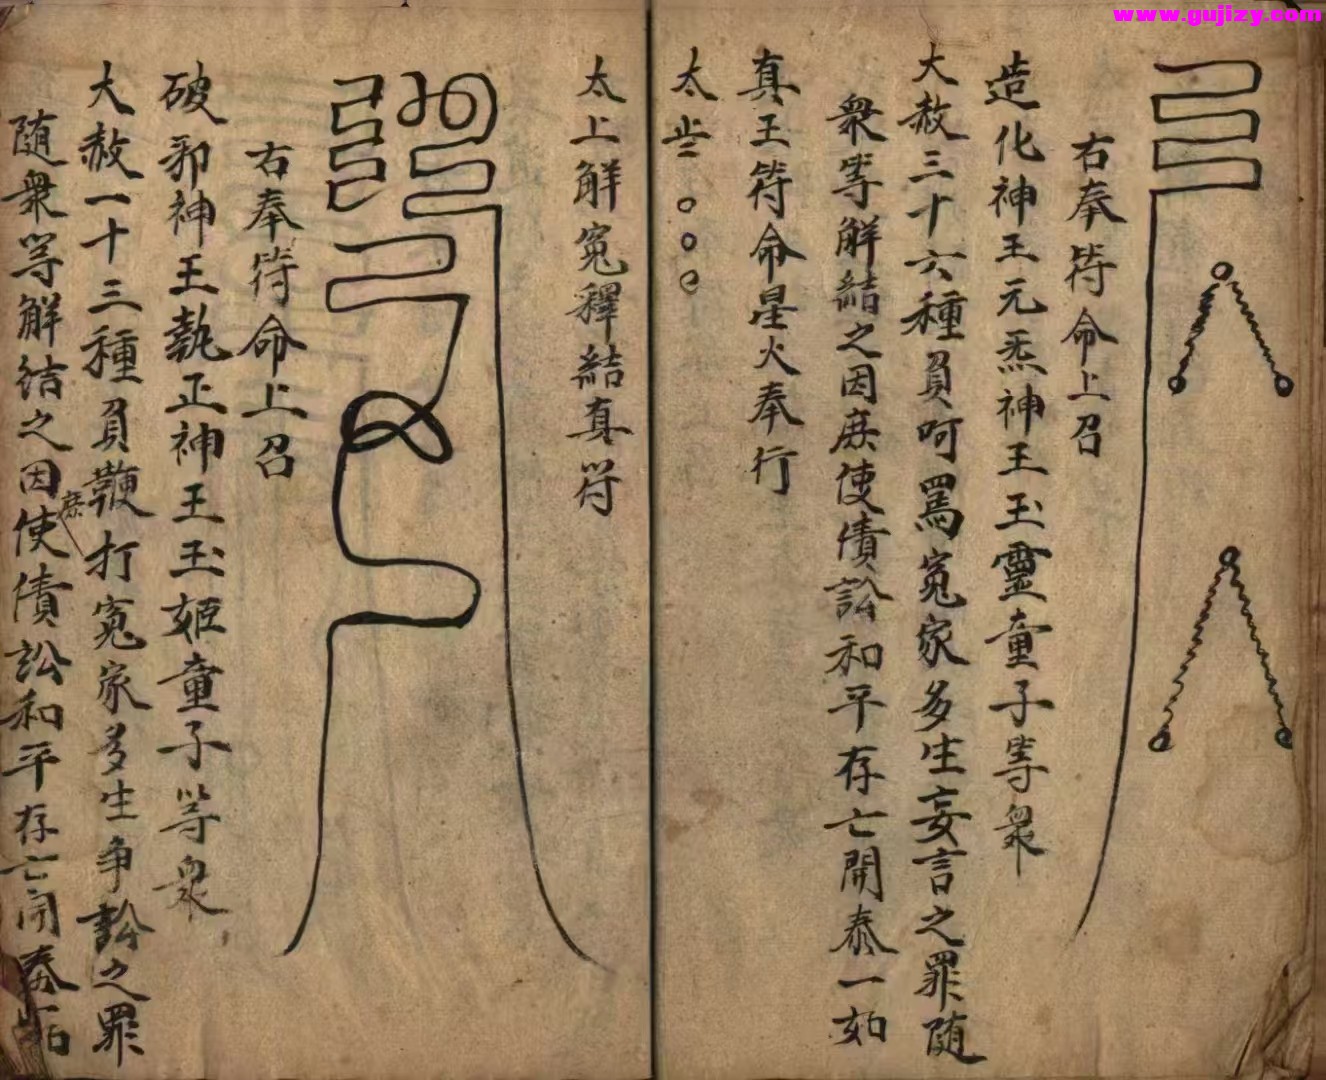 www.gujizy.com
右奉符命上召
造化神王元炁神王玉靈童子等眾
大赦三十六種負呵罵冤家多生妄言之罪随
衆等觧結之因庶使債訟和平存亡開泰一如
真王符命星火奉行
太上觧冤釋結真符
右奉符命上召
破邪神王執正神王玉姬童子等眾
大赦一十三種負鞭打冤家多生争訟之罪
随衆等觧结之因庶使債訟和平存亡開泰一如